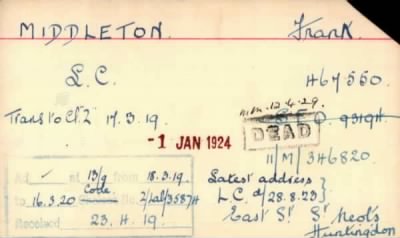 MIDDLETON. Frank.
L.C. H67560.
Trans to Cl. Z 17.3.19. 12.4.29.
-1 JAN 1924 DEAD 9319H
11/M/3H6820.
at 13/9 from 18.3.19. Latest address }
Code
to 16.3.20 2/Lal/3587H L.C. d/28.8.23 }
Received 23.4.19. East St St Neots
Huntingdon